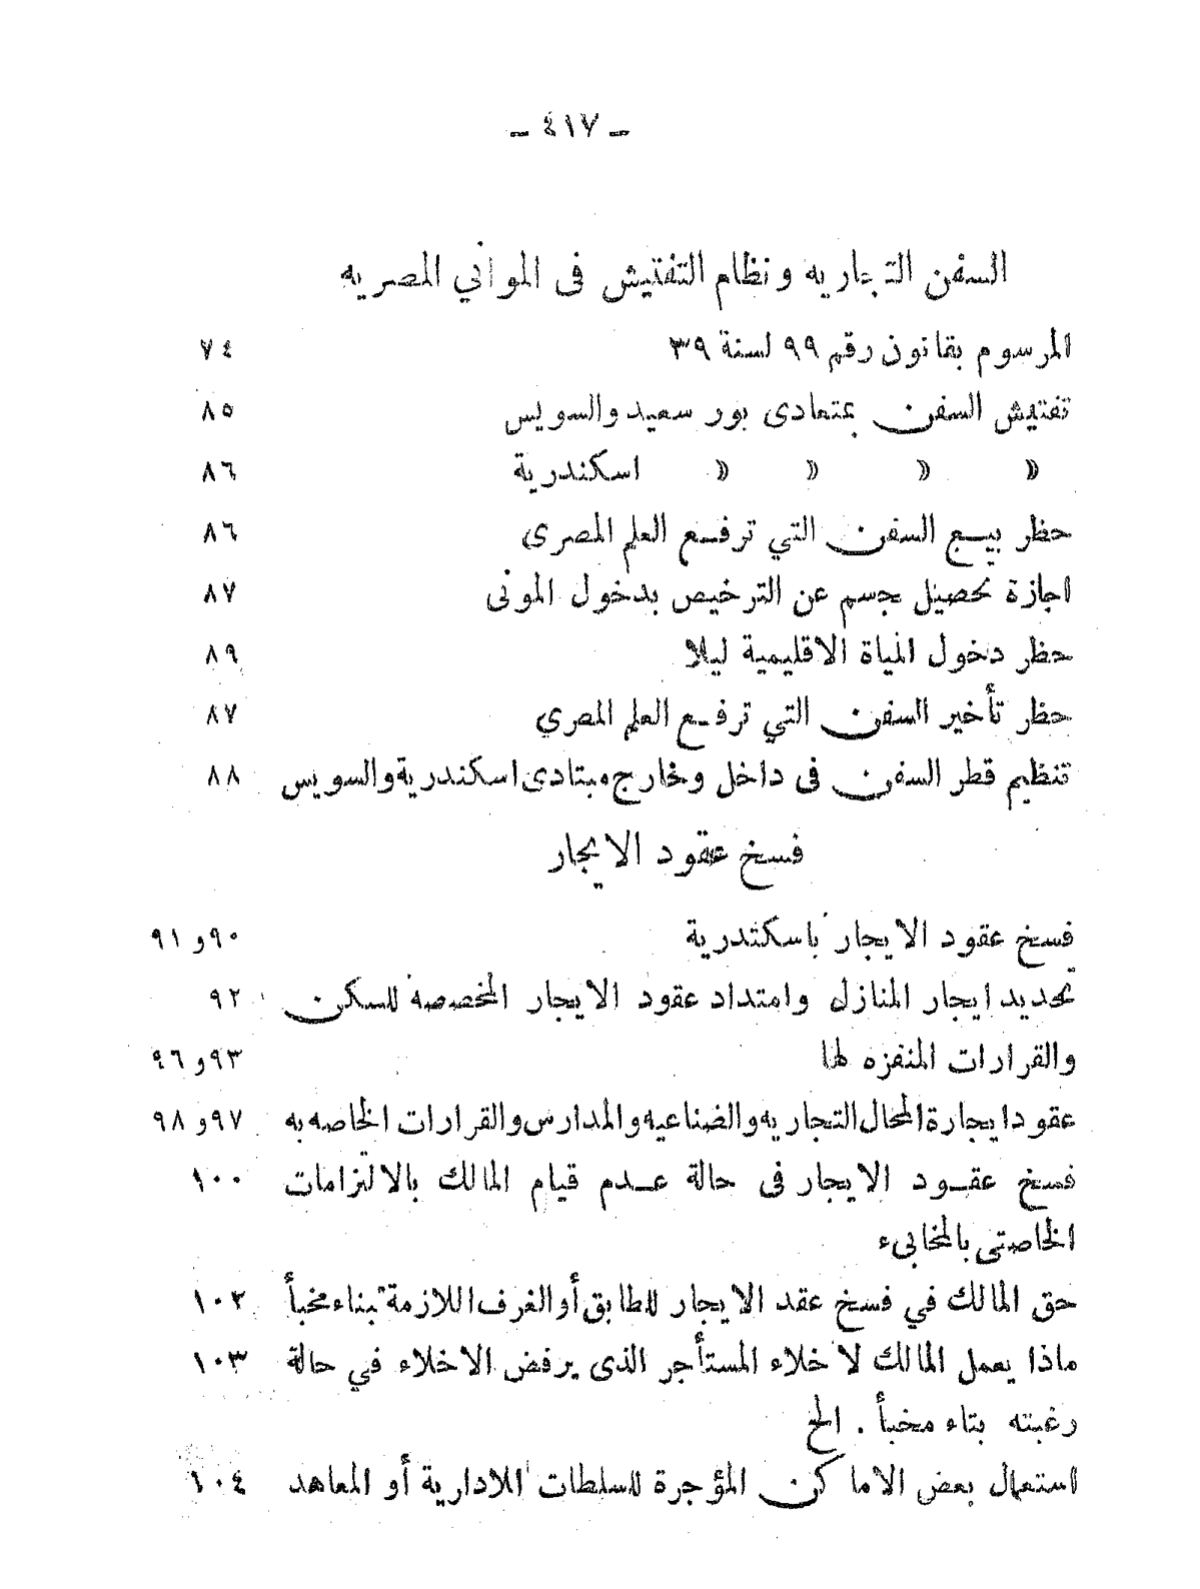 ـ ٤١٧ ـ
السفن التجاريه ونظام التفتيش فى الموانى المصريه
المرسوم بقانون رقم ٩٩ لسنة ٣٩ ٧٤
تفتيش السفن بمتعادى بور سعيد والسويس ٨٥
» » » » اسكندرية ٨٦
حظر بيع السفن التي ترفع العلم المصرى ٨٦
اجازة تحصيل جسم عن الترخيص بدخول المونى ٨٧
حظر دخول المياة الاقليمية ليلا ٨٩
حظر تأخير السفن التي ترفع العلم المصري ٨٧
تنظيم قطر السفن فى داخل وخارج مبتادى اسكندرية والسويس ٨٨
فسخ عقود الايجار
فسخ عقود الايجار باسكتدرية ٩٠ و ٩١
تحديد ايجار المنازل وامتداد عقود الايجار المخصصة للسكن ٩٢
والقرارات المنفزه لها ٩٣ و ٩٦
عقود ايجارة المحال التجاريه والصناعيه والمدارس والقرارات الخاصه به ٩٧ و ٩٨
فسخ عقود الايجار فى حالة عدم قيام المالك بالالتزامات ١٠٠
الخاصتى بالمخابىء
حق المالك في فسخ عقد الايجار للطابق أو الغرف اللازمة لبناء مخبأ ١٠٢
ماذا يعمل المالك لاخلاء المستأجر الذى يرفض الاخلاء في حالة ١٠٣
رغبته بتاء مخبأ . الخ
استعمال بعض الاماكن المؤجرة للسلطات الادارية أو المعاهد ١٠٤